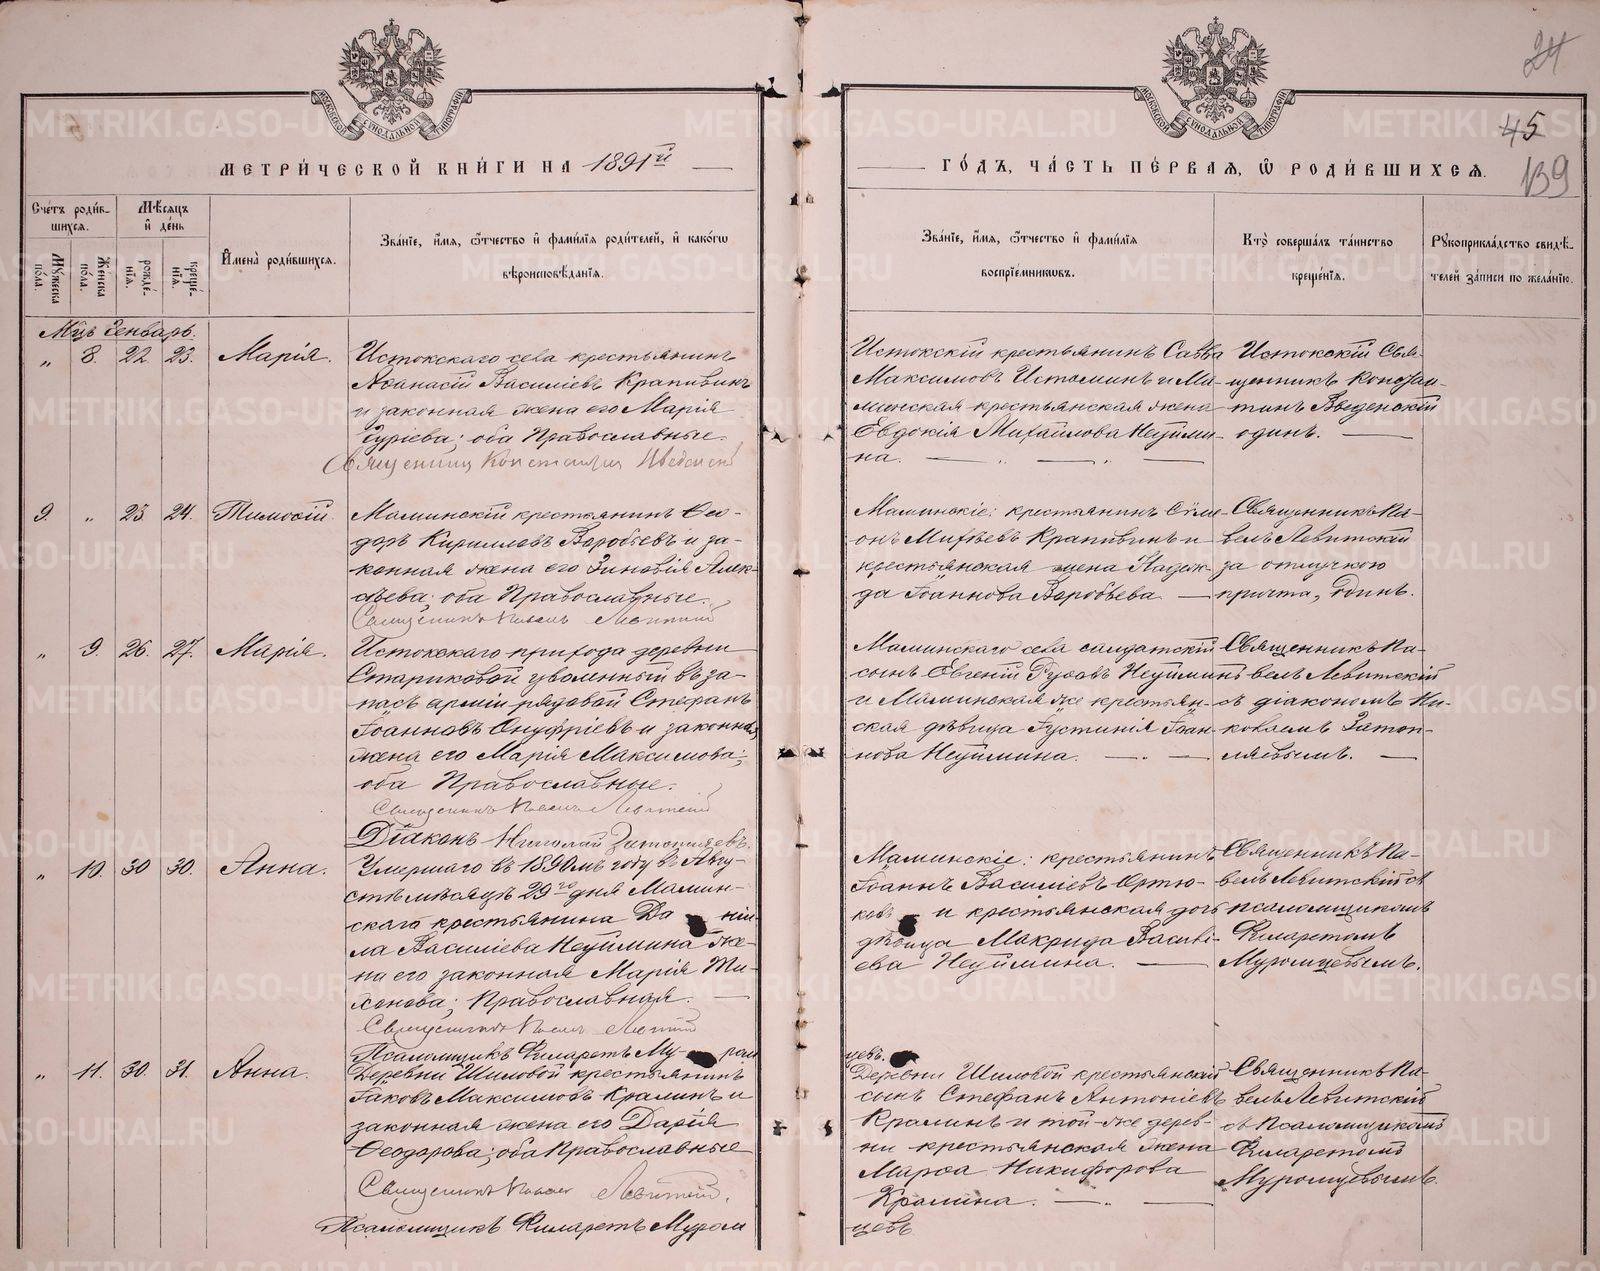 24
45
139
МЕТРИ́ЧЕСКОЙ КНИ́ГИ НА 1891й
ГО́ДЪ, ЧА́СТЬ ПЕ́РВАЯ, Ѡ҆ РОДИ́ВШИХСЯ.
МОСКОВСКОЙ СѴНОДАЛЬНОЙ ТИПОГРАФІИ
МОСКОВСКОЙ СѴНОДАЛЬНОЙ ТИПОГРАФІИ
Сче́тъ роди́в-
шихся.
Мѣ́сяцъ
и҆ де́нь
И҆мена̀ роди́вшихся.
Зва́нїе, и҆́мя, ѻ҆́тчество и҆ фами́лїя роди́телей, и҆ како́гѡ
вѣроисповѣ́данїя.
Мꙋ́жеска
по́ла.
Же́нска
по́ла.
рожде́-
нїя.
креще́-
нїя.
Зва́нїе, и҆́мя, ѻ҆́тчество и҆ фами́лїя
воспрїе́мниковъ.
Кто̀ соверша́лъ та́инство
креще́нїя.
Рꙋкоприкла́дство свидѣ́-
телей за́писи по жела́нїю.
Мцъ Генварь.
„ 8. 22. 23. Марія.
Истокскаго села крестьянинъ
Аѳанасій Василіевъ Крапивинъ
и законная жена его Марія
Гуріева; оба Православные.
Священникъ Константинъ Введенскій
Истокскій крестьянинъ Савва
Максимовъ Истоминъ и Ма-
минская крестьянская жена
Евдокія Михайлова Неуйми-
на.
Истокскій Свя-
щенникъ Констан-
тинъ Введенскій
одинъ.
9. „ 23. 24. Тимоѳій.
Маминскій крестьянинъ Ѳео-
доръ Кирилловъ Воробьевъ и за-
конная жена его Зиновія Алек-
сѣева; оба Православные.
Священникъ Павелъ Левитскій
Маминскіе: крестьянинъ Симе-
онъ Михѣевъ Крапивинъ и
крестьянская жена Надеж-
да Іоаннова Воробьева.
Священникъ Па-
велъ Левитскій
за отлучкою
причта, Одинъ.
„ 9. 26. 27. Марія.
Истокскаго прихода деревни
Стариковой уволенный въ за-
пасъ арміи рядовой Стефанъ
Іоанновъ Онуфріевъ и законная
жена его Марія Максимова;
оба Православные.
Священникъ Павелъ Левитскій
Діаконъ Николай Затопляевъ.
Маминскаго села солдатскій
сынъ Евгеній Неуйминъ
и Маминская же крестьян-
ская дѣвица Іустинія Іоан-
нова Неуймина.
Священникъ Па-
велъ Левитскій
съ діакономъ Ни-
колаемъ Затоп-
ляевымъ.
„ 10. 30 30. Анна.
Умершаго въ 1890мъ году въ Авгу-
стѣ мѣсяцѣ 29го дня Мамин-
скаго крестьянина Да ніи-
ла Василіева Неуймина же-
на его законная Марія Ти-
хонова; Православная.
Священникъ Павелъ Левитскій
Псаломщикъ Филаретъ Му- ром
цевъ.
Маминскіе: крестьянинъ
Іоаннъ Василіевъ Ортю-
ковъ и крестьянская дочь
дѣвица Макрида Васили-
ева Неуймина.
Священникъ Па-
велъ Левитскій съ
псаломщикомъ
Филаретомъ
Муромцевымъ.
„ 11. 30. 31. Анна.
Деревни Шиловой крестьянинъ
Іаковъ Максимовъ Краминъ и
законная жена его Дарія
Ѳеодорова; оба Православные
Священникъ Павелъ Левитскій.
Псаломщикъ Филаретъ Муром
цевъ
Деревни Шиловой крестьянскій
сынъ Стефанъ Антоніевъ
Краминъ и той же дерев-
ни крестьянская жена
Марѳа Никифорова
Крамина.
Священникъ Па-
велъ Левитскій
съ псаломщикомъ
Филаретомъ
Муромцевымъ.
METRIKI.GASO-URAL.RU